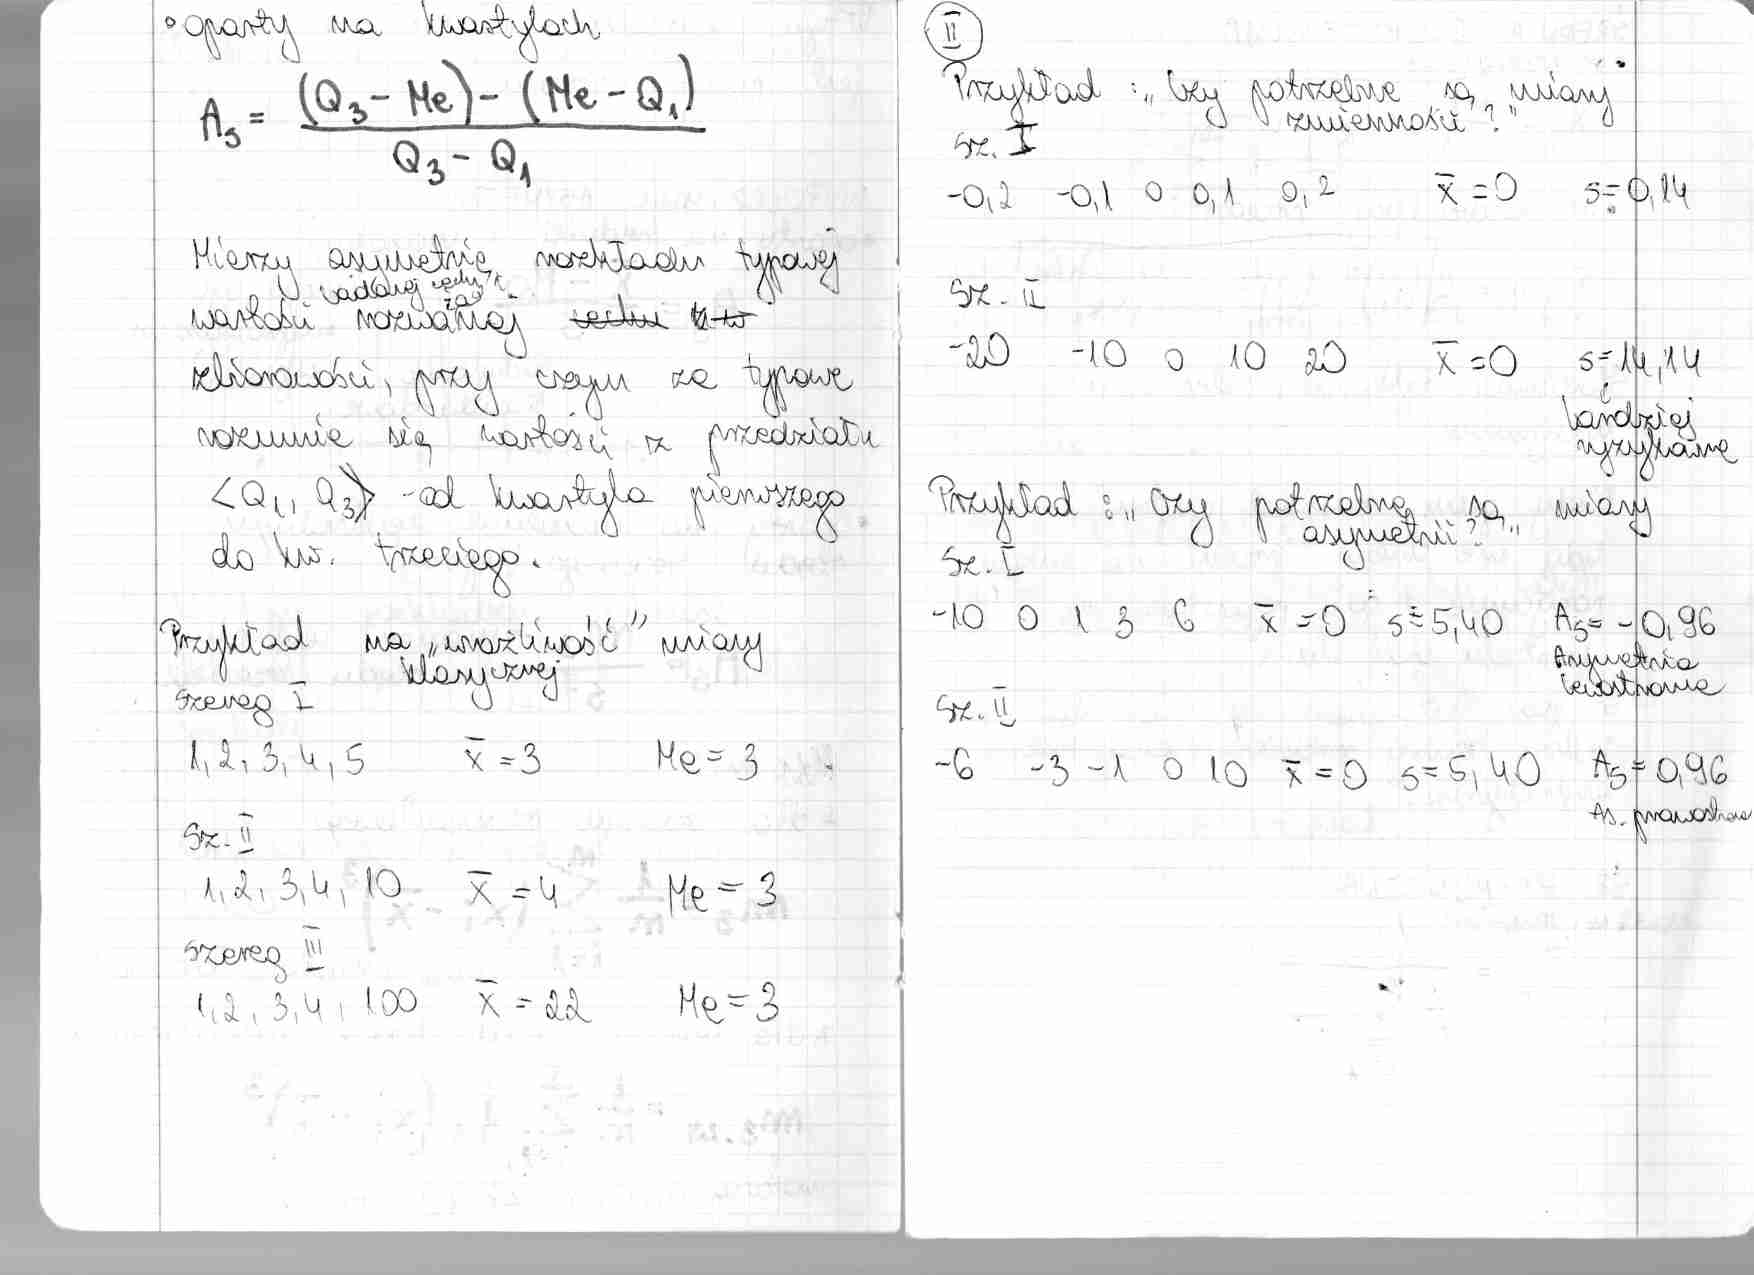 • oparty na kwartylach
A_s = \frac{(Q_3 - Me) - (Me - Q_1)}{Q_3 - Q_1}
Mierzy asymetrię rozkładu typowej
wartości badanej cechy
zbiorowości, przy czym za typowe
rozumie się wartości z przedziału
<Q_1, Q_3> - od kwartyla pierwszego
do kw. trzeciego.
Przykład na „wrażliwość" miary
klasycznej
Szereg I
1, 2, 3, 4, 5 x̄ = 3 Me = 3
Sz. II
1, 2, 3, 4, 10 x̄ = 4 Me = 3
Szereg III
1, 2, 3, 4, 100 x̄ = 22 Me = 3
II
Przykład : „Czy potrzebne są miary
zmienności?"
Sz. I
-0,2 -0,1 0 0,1 0,2 x̄ = 0 s = 0,14
Sz. II
-20 -10 0 10 20 x̄ = 0 s = 14,14
bardziej
ryzykowne
Przykład : „Czy potrzebne są miary
asymetrii?„
Sz. I
-10 0 1 3 6 x̄ = 0 s = 5,40 A_s = -0,96
Asymetria
lewostronna
Sz. II
-6 -3 -1 0 10 x̄ = 0 s = 5,40 A_s = 0,96
As. prawostronna